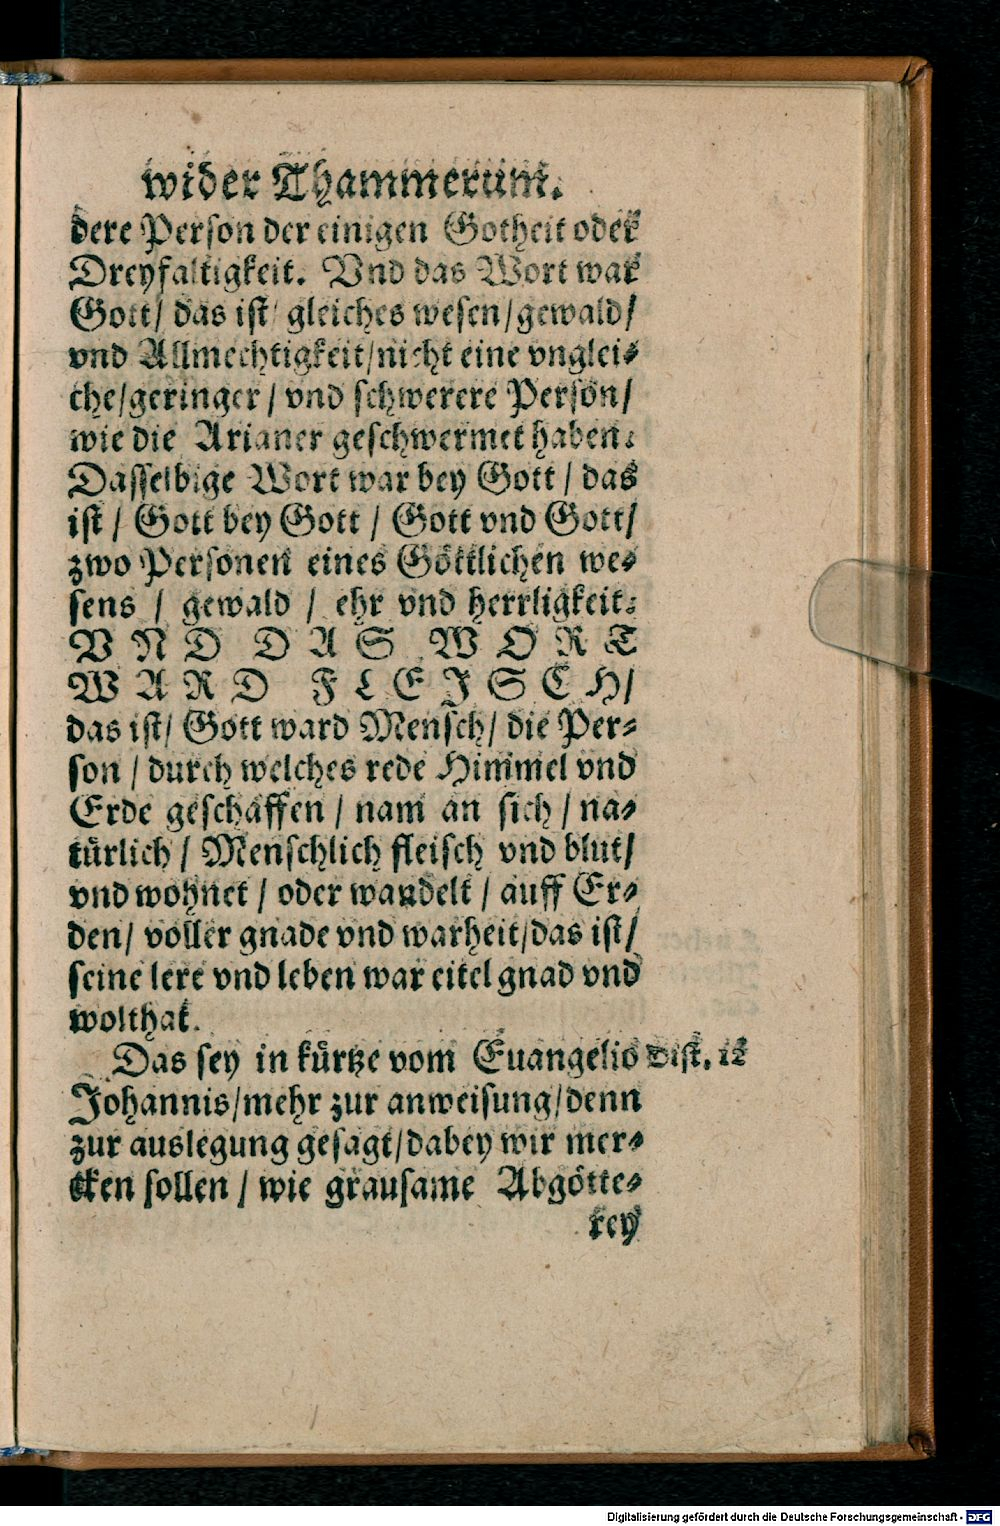 wider Thammerum.
dere Person der einigen Gotheit oder
Dreyfaltigkeit. Vnd das Wort war
Gott/ das ist gleiches wesen/gewald/
vnd Allmechtigkeit/nicht eine vnglei-
che/geringer/ vnd schwerere Person/
wie die Arianer geschwermet haben.
Dasselbige Wort war bey Gott/ das
ist/ Gott bey Gott/ Gott vnd Gott/
zwo Personen eines Göttlichen we-
sens/ gewald/ ehr vnd herrligkeit.
VND DAS WORT
WARD FLEISCH/
das ist/ Gott ward Mensch/ die Per-
son/ durch welches rede Himmel vnd
Erde geschaffen/ nam an sich/ na-
türlich/ Menschlich fleisch vnd blut/
vnd wohnet/ oder wandelt/ auff Er-
den/ voller gnade vnd warheit/das ist/
seine lere vnd leben war eitel gnad vnd
wolthat.
Das sey in kürtze vom Euangelio Dist. 12
Johannis/mehr zur anweisung/denn
zur auslegung gesagt/dabey wir mer-
cken sollen/ wie grausame Abgötte-
rey
Digitalisierung gefördert durch die Deutsche Forschungsgemeinschaft - DFG